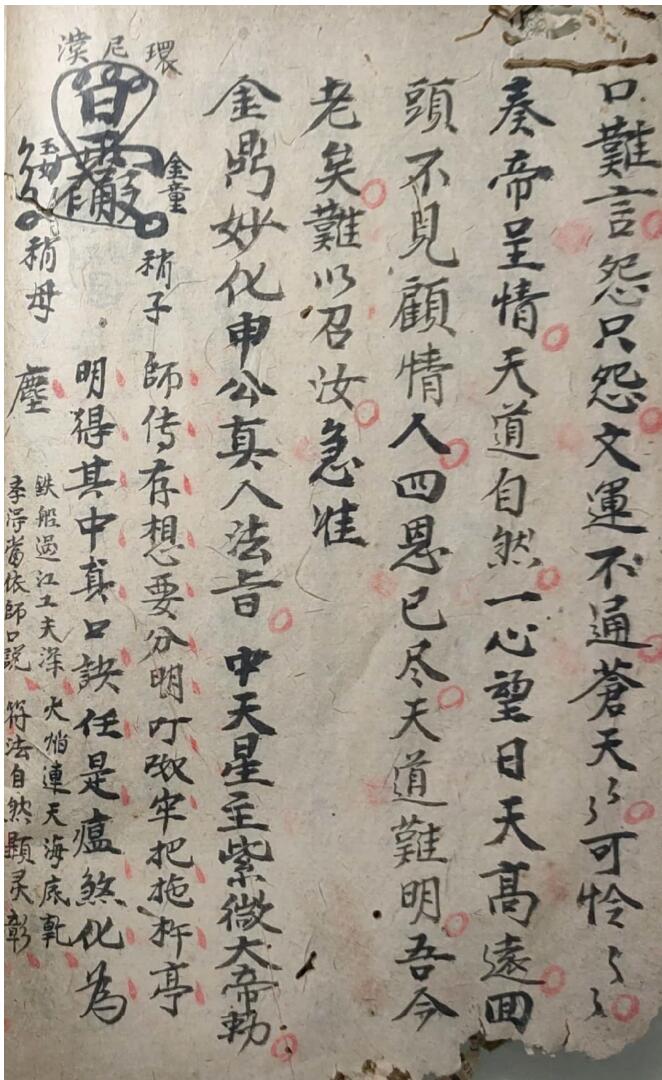 口難言怨只怨文運不通蒼天〻可怜〻〻
奏帝呈情天道自然一心望日天高遠回
頭不見顧情人四恩已尽天道難明吾今
老矣難以召汝急准
金鼎妙化申公真人法旨中天星主紫微大帝勅
環尼濮
金童
玉女
稍子
稍母
師傳存想要分明叮𠰺牢把拖杵亭
明得其中真口訣任是瘟煞化為
塵
鉄船過江工夫深火焰連天海底乾
季得當依師口說符法自然顯灵彰